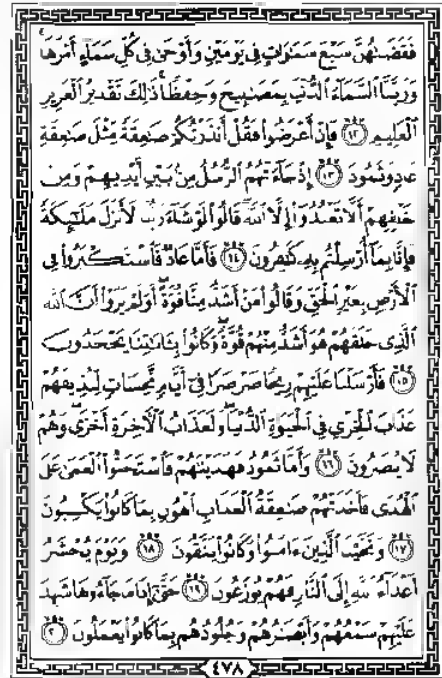 فَقَضَىٰهُنَّ سَبْعَ سَمَٰوَاتٍ فِي يَوْمَيْنِ وَأَوْحَىٰ فِي كُلِّ سَمَآءٍ أَمْرَهَا
وَزَيَّنَّا ٱلسَّمَآءَ ٱلدُّنْيَا بِمَصَٰبِيحَ وَحِفْظًا ذَٰلِكَ تَقْدِيرُ ٱلْعَزِيزِ
ٱلْعَلِيمِ ١٢ فَإِنْ أَعْرَضُوا۟ فَقُلْ أَنذَرْتُكُمْ صَٰعِقَةً مِّثْلَ صَٰعِقَةِ
عَادٍ وَثَمُودَ ١٣ إِذْ جَآءَتْهُمُ ٱلرُّسُلُ مِنۢ بَيْنِ أَيْدِيهِمْ وَمِنْ
خَلْفِهِمْ أَلَّا تَعْبُدُوٓا۟ إِلَّا ٱللَّهَ قَالُوا۟ لَوْ شَآءَ رَبُّنَا لَأَنزَلَ مَلَٰٓئِكَةً
فَإِنَّا بِمَآ أُرْسِلْتُم بِهِۦ كَٰفِرُونَ ١٤ فَأَمَّا عَادٌ فَٱسْتَكْبَرُوا۟ فِي
ٱلْأَرْضِ بِغَيْرِ ٱلْحَقِّ وَقَالُوا۟ مَنْ أَشَدُّ مِنَّا قُوَّةً أَوَلَمْ يَرَوْا۟ أَنَّ ٱللَّهَ
ٱلَّذِي خَلَقَهُمْ هُوَ أَشَدُّ مِنْهُمْ قُوَّةً وَكَانُوا۟ بِـَٔايَٰتِنَا يَجْحَدُونَ
١٥ فَأَرْسَلْنَا عَلَيْهِمْ رِيحًا صَرْصَرًا فِيٓ أَيَّامٍ نَّحِسَاتٍ لِّنُذِيقَهُمْ
عَذَابَ ٱلْخِزْيِ فِي ٱلْحَيَوٰةِ ٱلدُّنْيَا وَلَعَذَابُ ٱلْأَخِرَةِ أَخْزَىٰ وَهُمْ
لَا يُنصَرُونَ ١٦ وَأَمَّا ثَمُودُ فَهَدَيْنَٰهُمْ فَٱسْتَحَبُّوا۟ ٱلْعَمَىٰ عَلَى
ٱلْهُدَىٰ فَأَخَذَتْهُمْ صَٰعِقَةُ ٱلْعَذَابِ ٱلْهُونِ بِمَا كَانُوا۟ يَكْسِبُونَ
١٧ وَنَجَّيْنَا ٱلَّذِينَ ءَامَنُوا۟ وَكَانُوا۟ يَتَّقُونَ ١٨ وَيَوْمَ يُحْشَرُ
أَعْدَآءُ ٱللَّهِ إِلَى ٱلنَّارِ فَهُمْ يُوزَعُونَ ١٩ حَتَّىٰٓ إِذَا مَا جَآءُوهَا شَهِدَ
عَلَيْهِمْ سَمْعُهُمْ وَأَبْصَٰرُهُمْ وَجُلُودُهُم بِمَا كَانُوا۟ يَعْمَلُونَ ٢٠
٤٧٨